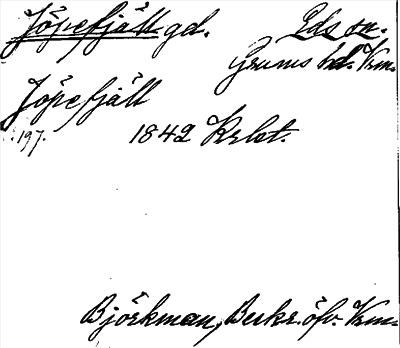 Jöpefjäll gd. Eds sn.
Grums hd. Vrm.
Jöpefjäll
:197. 1842 Krlot.
Björkman, Beskr. öfv. Vrm.